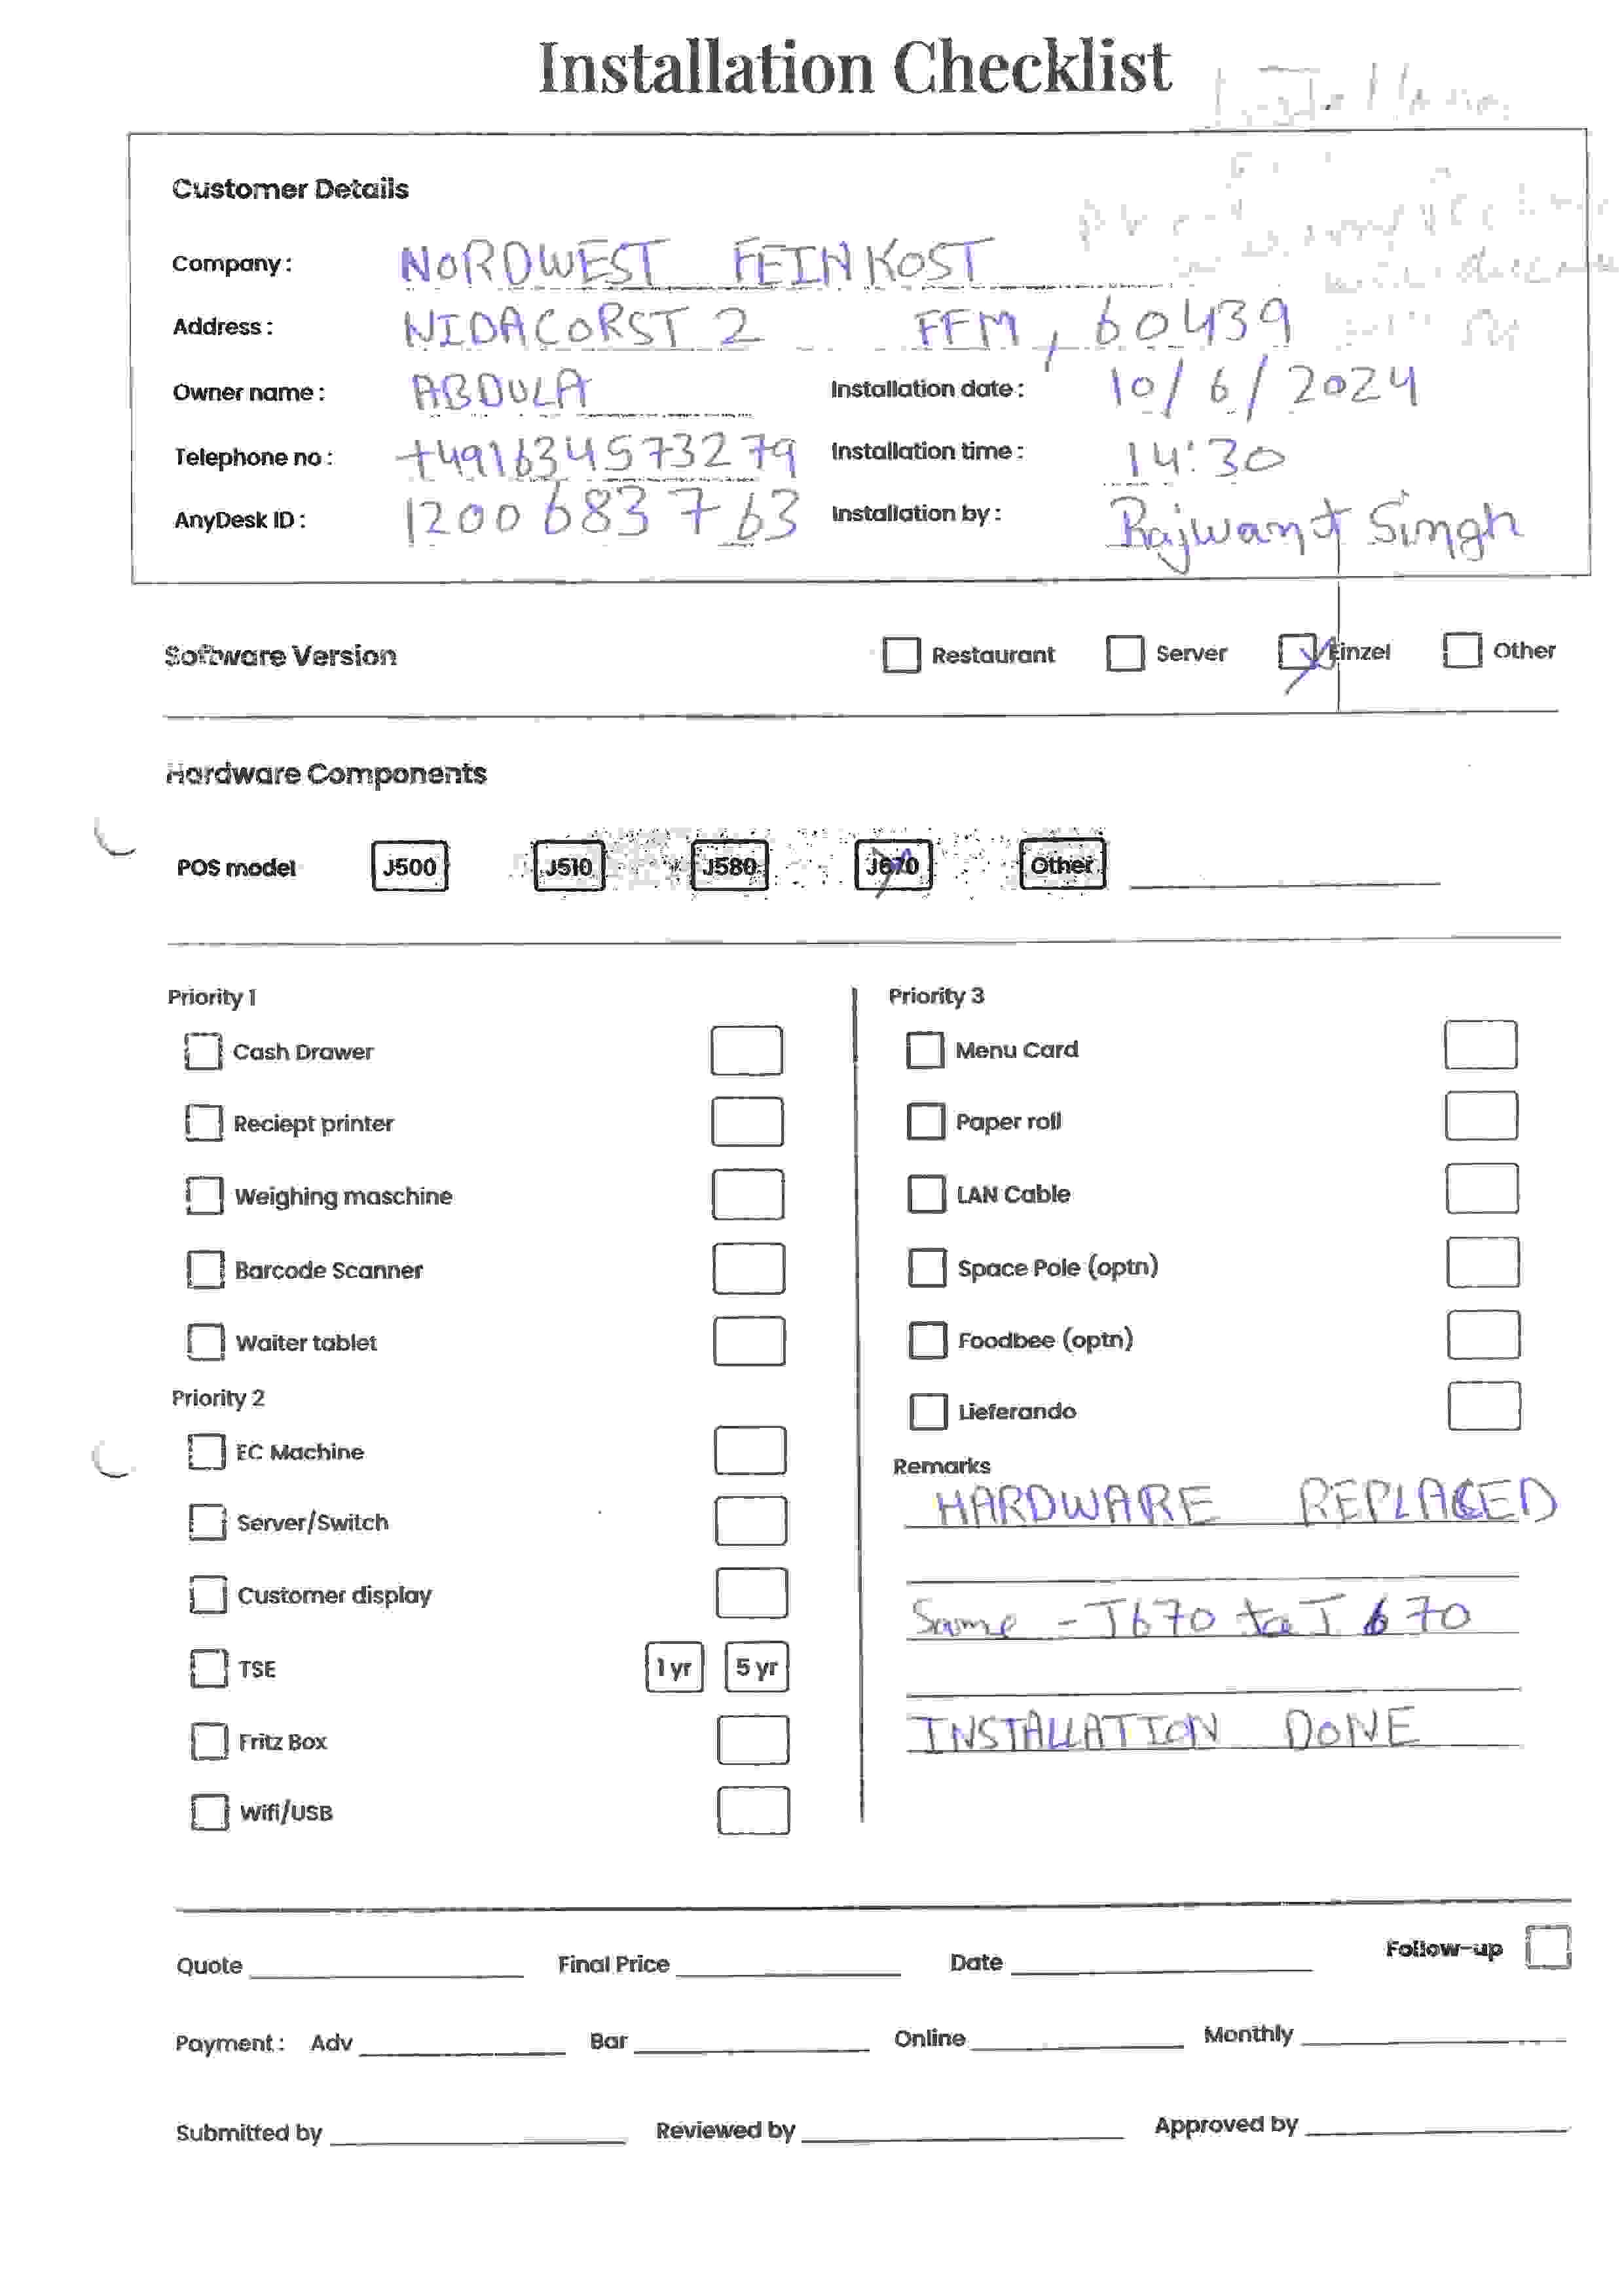 Installation Checklist
Customer Details
Company: NORDWEST FEINKOST
Address: NIDACORST 2 FFM, 60439
Owner name: ABDULA Installation date: 10/6/2024
Telephone no: +491634573279 Installation time: 14:30
AnyDesk ID: 1200683763 Installation by: Rajwant Singh
Software Version Restaurant Server Einzel Other
Hardware Components
POS model J500 J510 J580 J670 Other
Priority 1
Cash Drawer
Reciept printer
Weighing maschine
Barcode Scanner
Waiter tablet
Priority 2
EC Machine
Server/Switch
Customer display
TSE 1 yr 5 yr
Fritz Box
Wifi/USB
Priority 3
Menu Card
Paper roll
LAN Cable
Space Pole (optn)
Foodbee (optn)
Lieferando
Remarks
HARDWARE REPLACED
Same - J670 to J670
INSTALLATION DONE
Quote Final Price Date Follow-up
Payment: Adv Bar Online Monthly
Submitted by Reviewed by Approved by